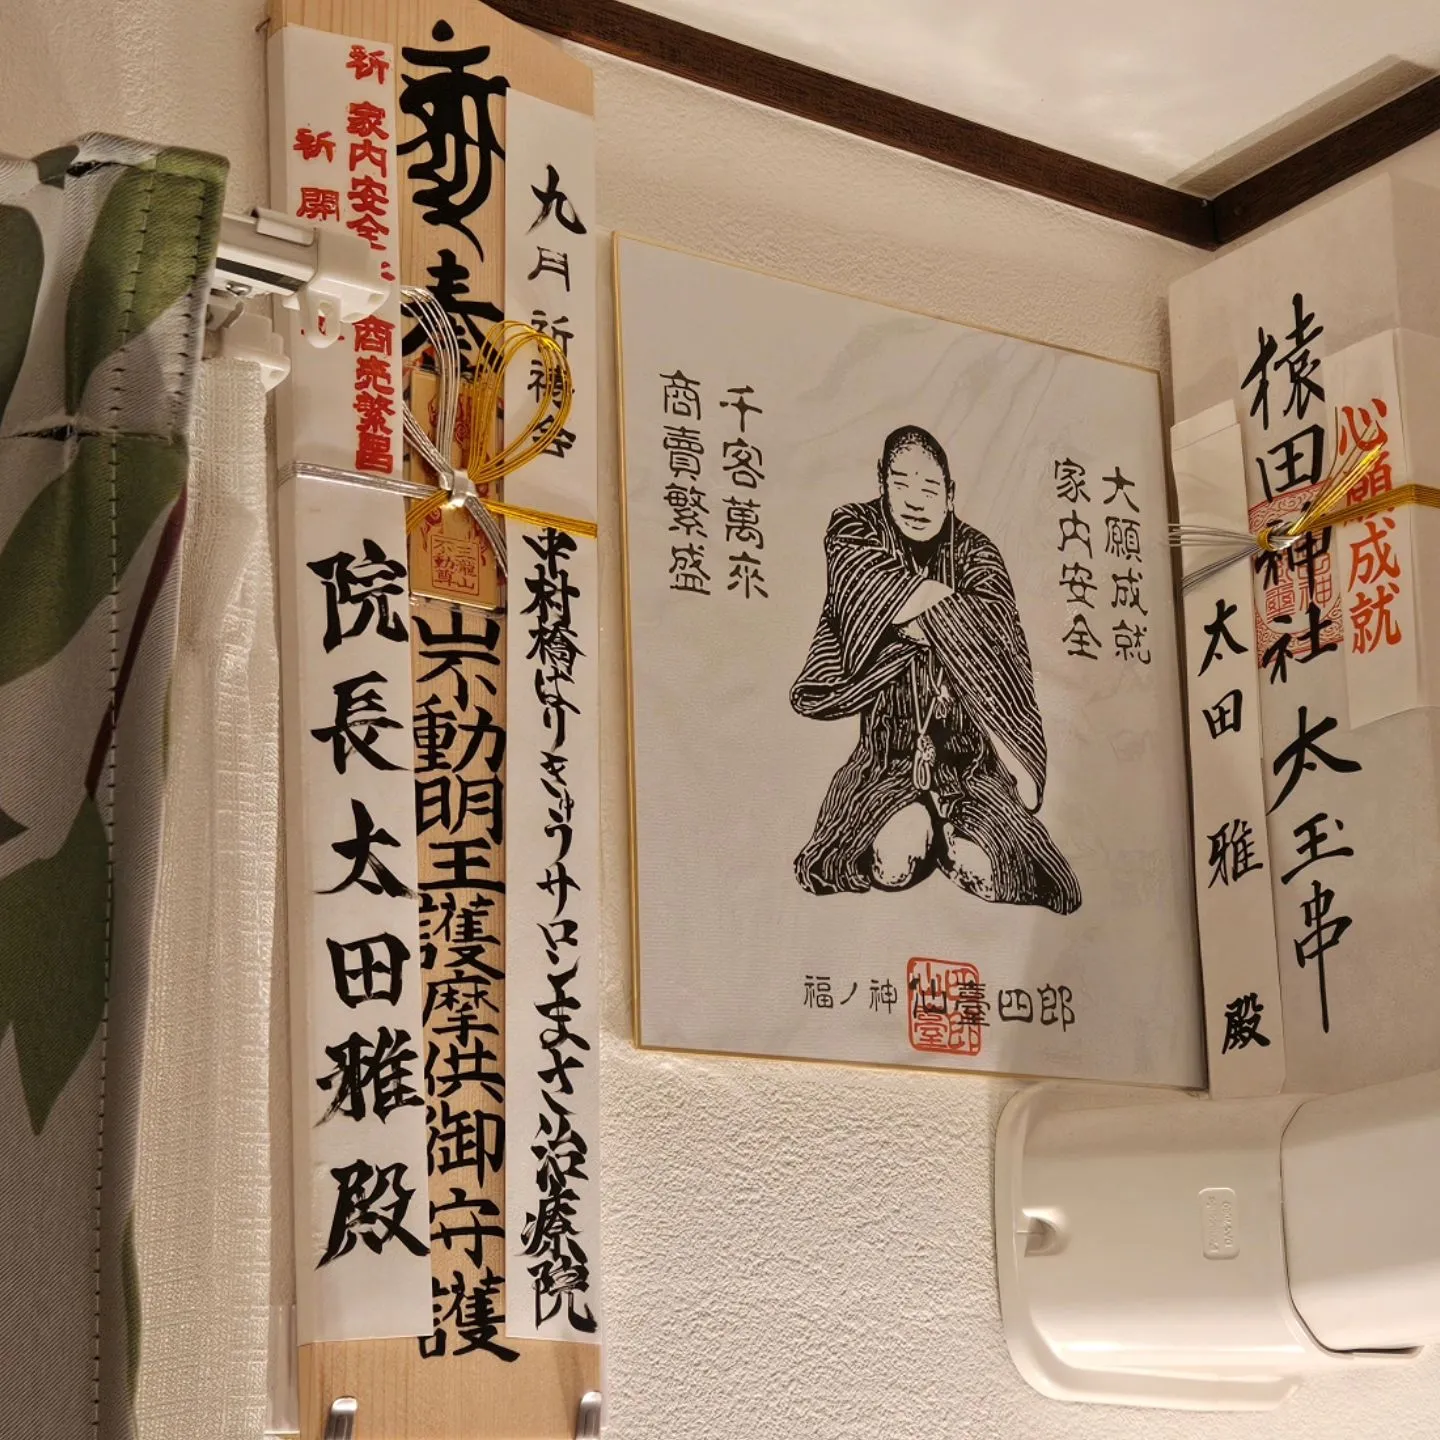 祈 家内安全
商売繁昌
祈 開
院長太田雅殿
奉
不動明王護摩供御守護
三瀧山
不動尊
九月祈祷会
中村橋はりきゅうサロンまさ治療院
千客萬来
商賣繁盛
大願成就
家内安全
福ノ神 仙臺四郎
心願成就
猿田神社 大玉串
太田雅殿